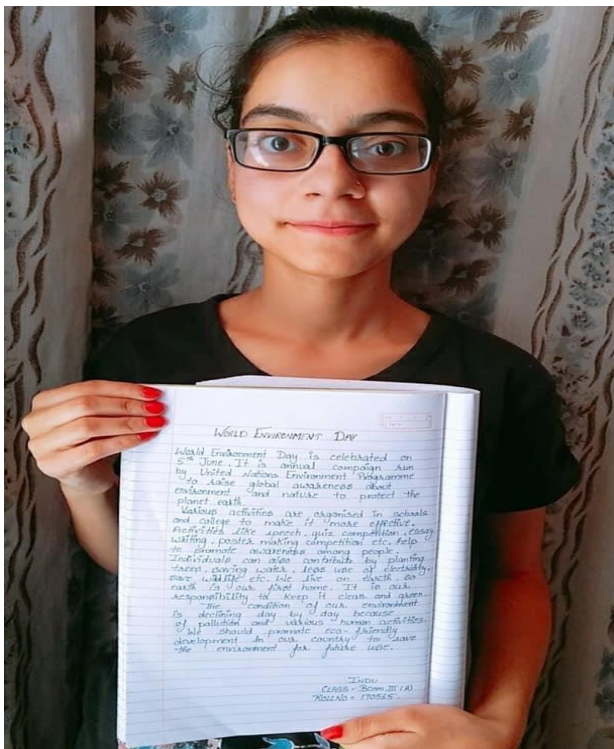 WORLD ENVIRONMENT DAY
World Environment Day is celebrated on
5th June. It is annual campaign run
by United Nations Environment Programme
to raise global awareness about
environment and nature to protect the
planet earth.
Various activities are organised in schools
and college to make it more effective.
Activities like speech, quiz competition, essay
writing, poster making competition etc. help
to promote awareness among people.
Individuals can also contribute by planting
trees, saving water, less use of electricity,
save wildlife etc. We live on Earth, so
earth is our first home. It is our
responsibility to keep it clean and green.
The condition of our environment
is declining day by day because
of pollution and various human activities.
We should promote eco-friendly
development in our country to save
the environment for future use.
INDU
CLASS - BCOM III (A)
ROLL NO - 170565.